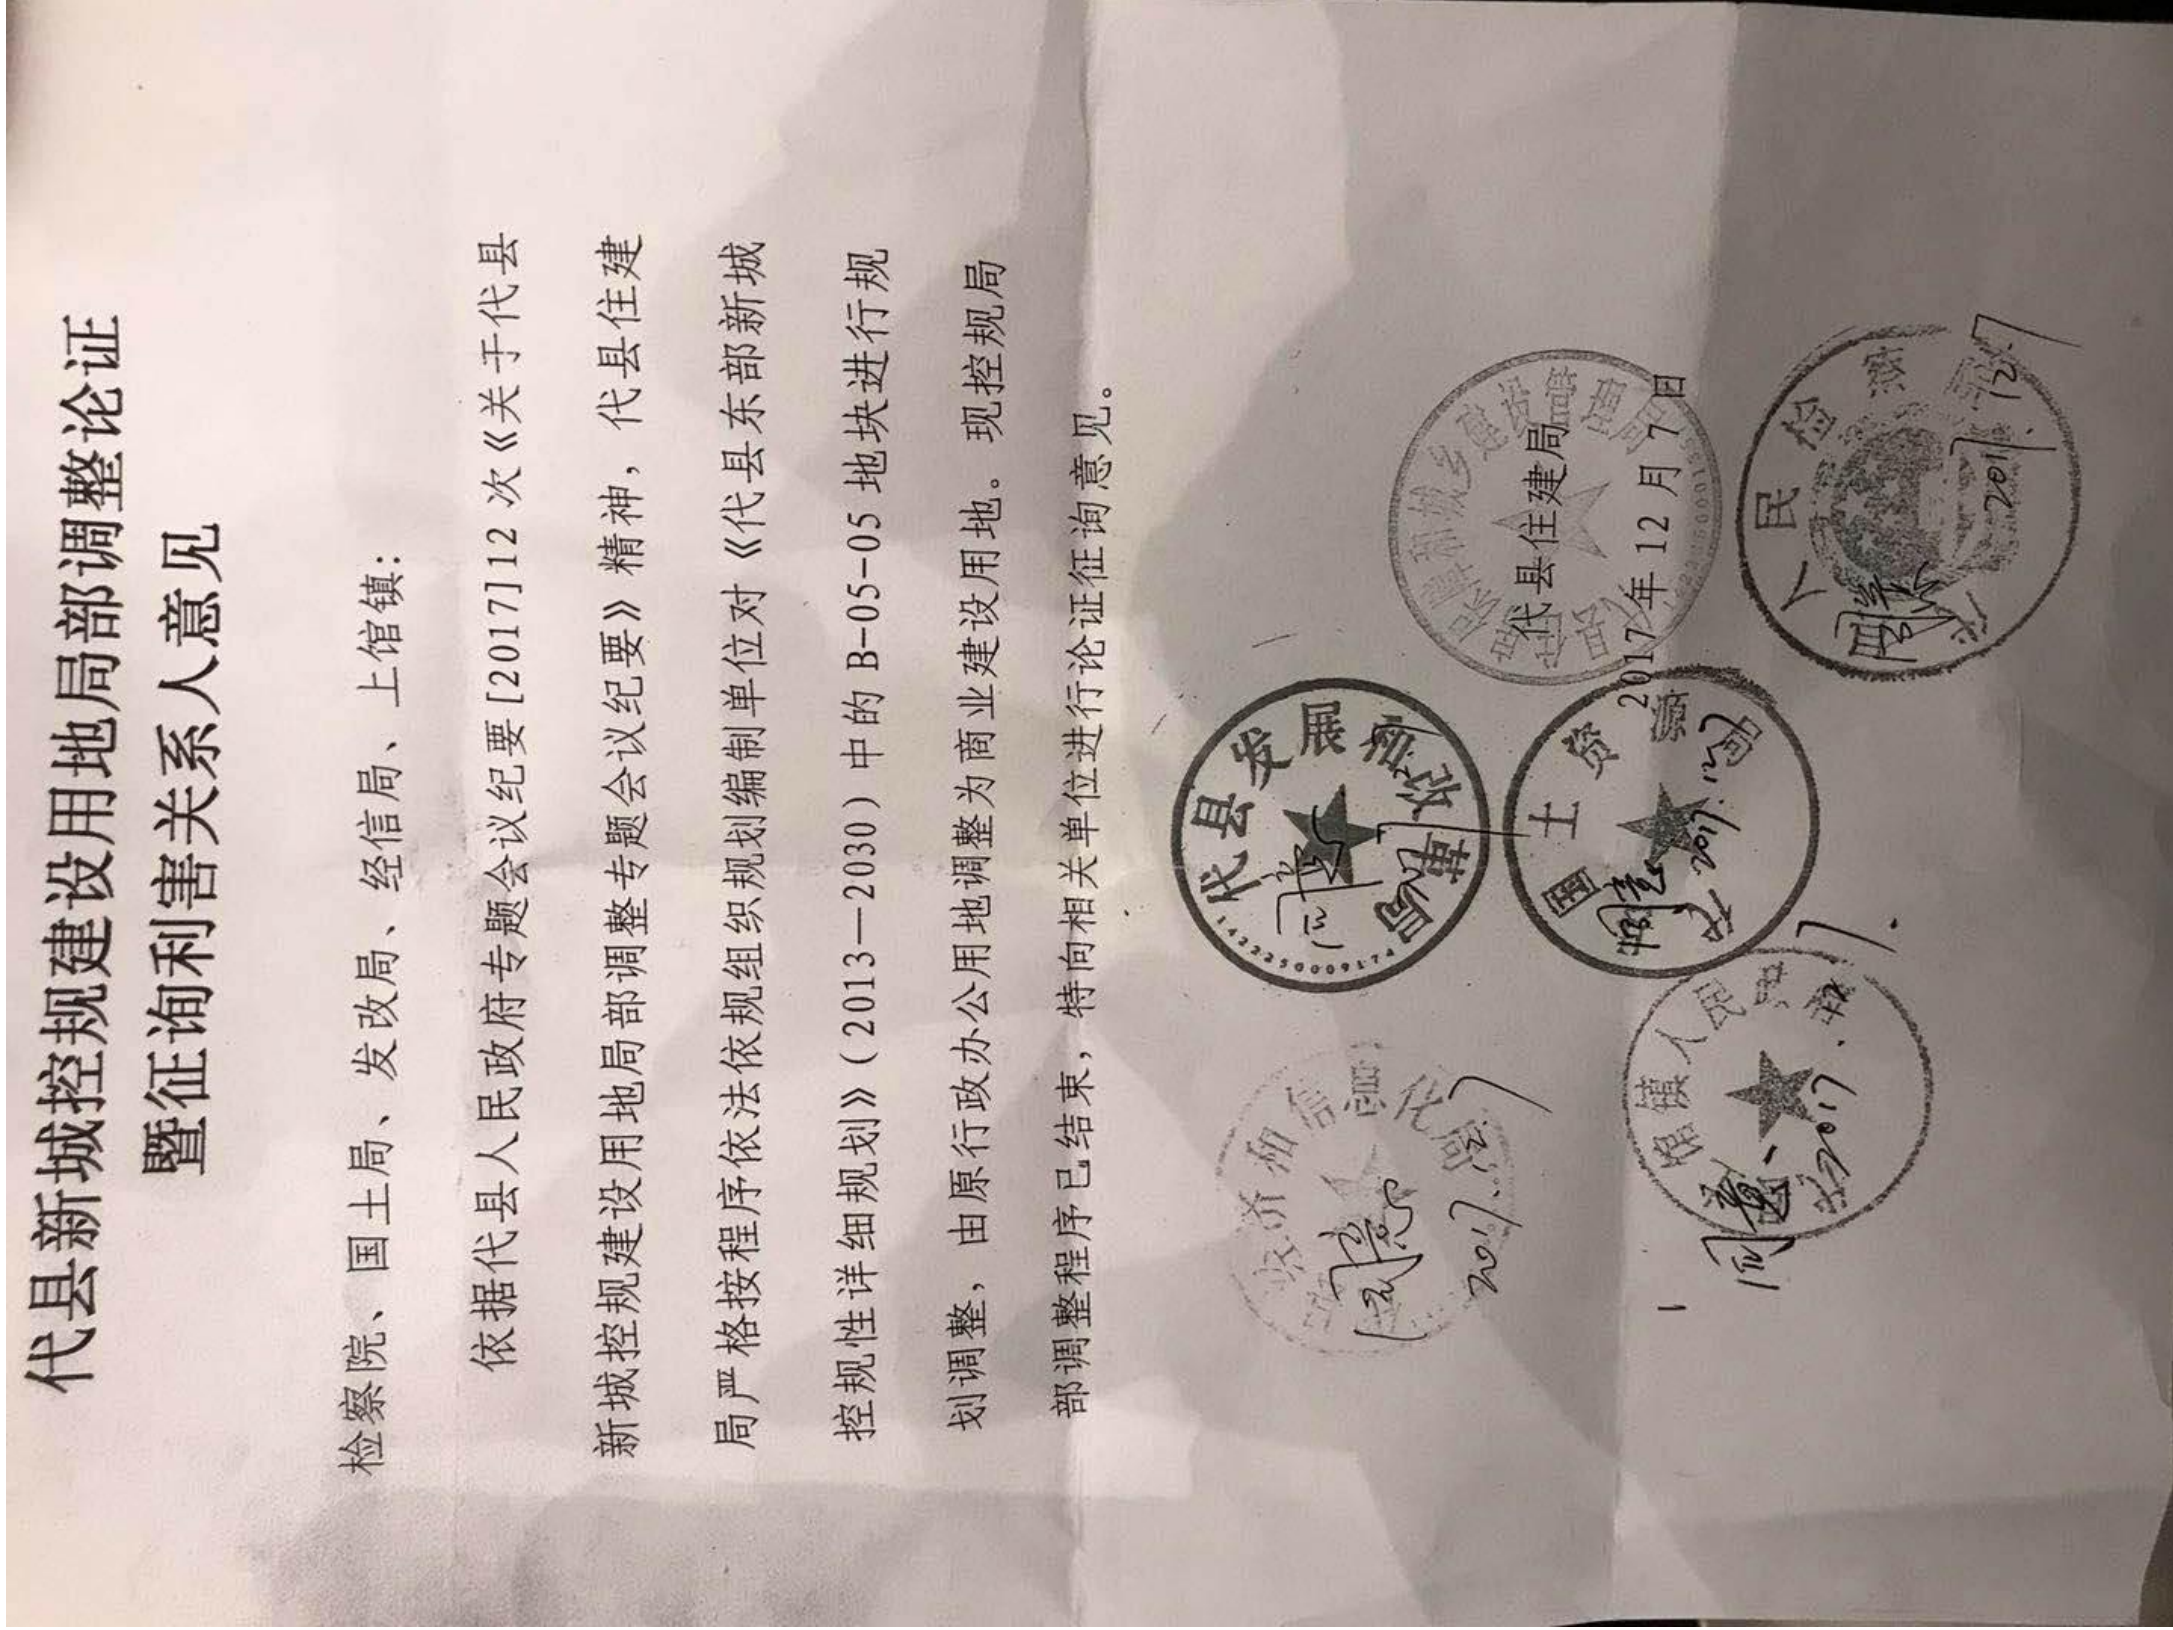 代县新城控规建设用地局部调整论证
暨征询利害关系人意见
检察院、国土局、发改局、经信局、上馆镇：
依据代县人民政府专题会议纪要[2017]12次《关于代县
新城控规建设用地局部调整专题会议纪要》精神，代县住建
局严格按程序依法依规组织规划编制单位对《代县东部新城
控规性详细规划》（2013—2030）中的B-05-05地块进行规
划调整，由原行政办公用地调整为商业建设用地。现控规局
部调整程序已结束，特向相关单位进行论证征询意见。
代县住建局
2017年12月7日
住房和城乡建设管理局
代县发展和改革局
1422250009174
同意
经济和信息化局
同意
2017.12.7
国土资源局
同意
2017.12.7
馆镇人民政府
同意
2017.12.7
人民检察院
同意
2017.12.7